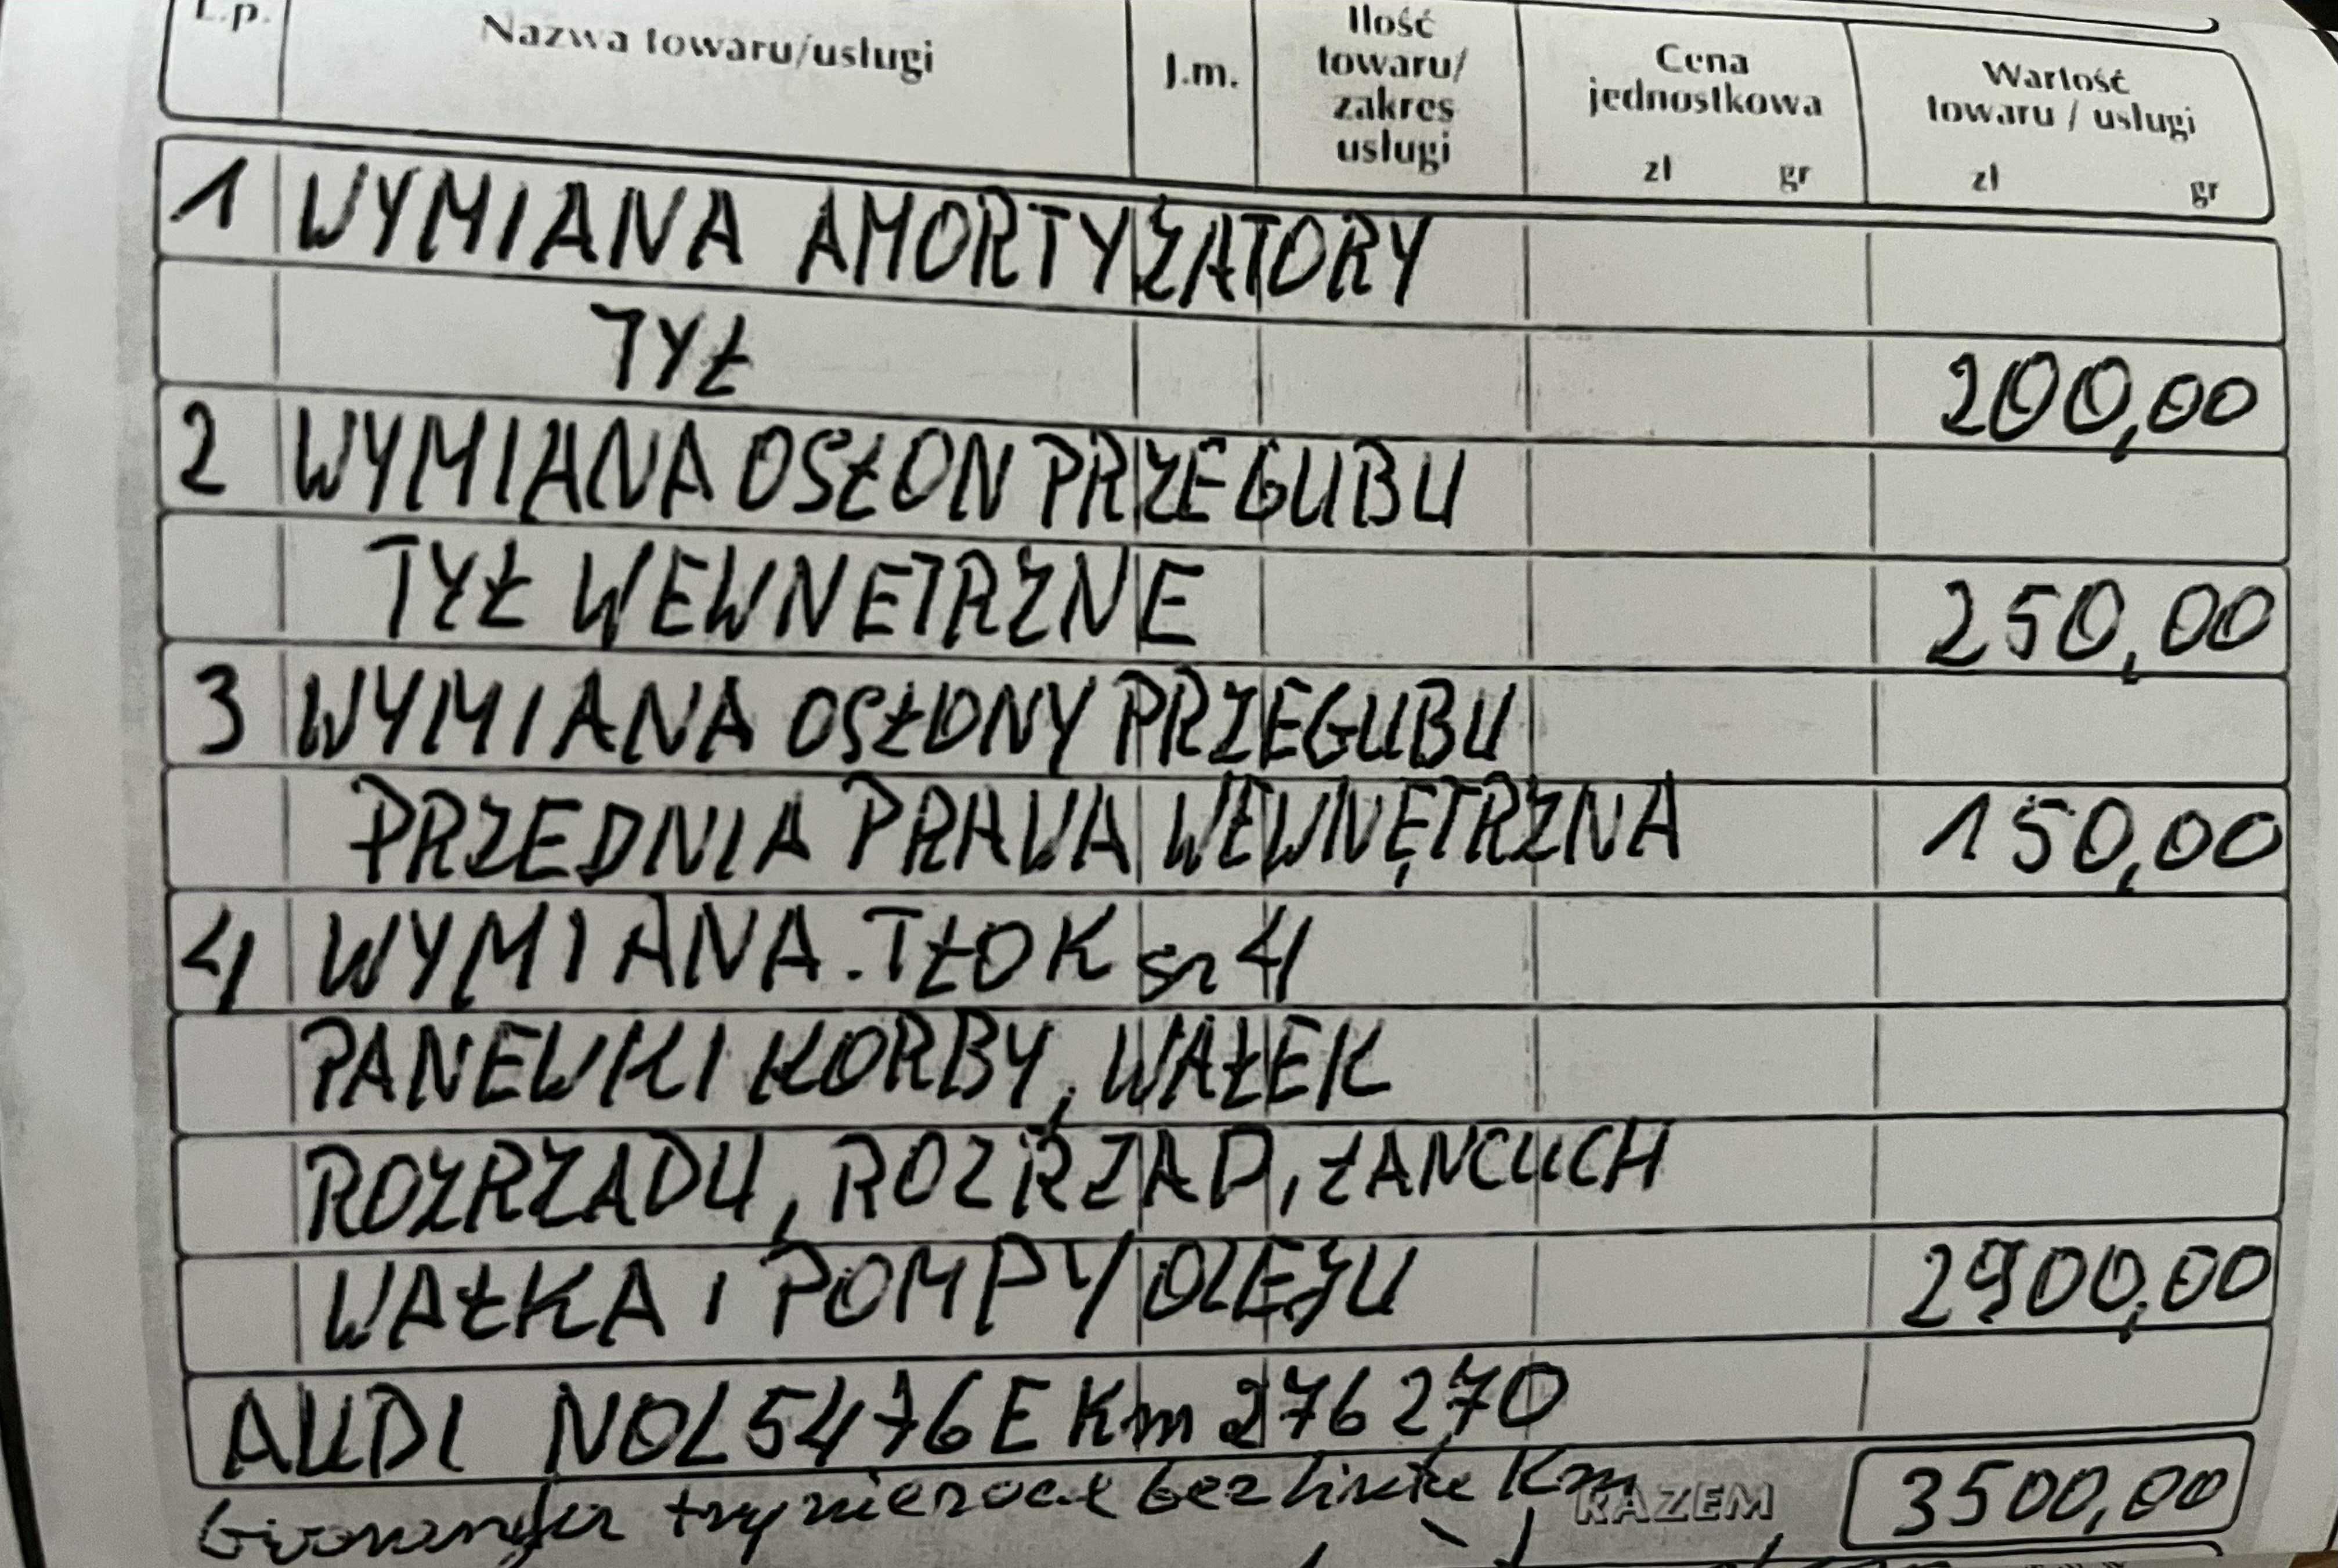 L.p.
Nazwa towaru/usługi
J.m.
Ilość
towaru/
zakres
usługi
Cena
jednostkowa
zł gr
Wartość
towaru / usługi
zł gr
1 WYMIANA AMORTYZATORY
TYŁ 200,00
2 WYMIANA OSŁON PRZEGUBU
TYŁ WEWNETRZNE 250,00
3 WYMIANA OSŁONY PRZEGUBU
PRZEDNIA PRAWA WEWNĘTRZNA 150,00
4 WYMIANA. TŁOK 4
PANEWKI KORBY, WAŁEK
ROZRZADU, ROZRZAD, ŁANCUCH
WAŁKA I POMPY OLEJU 2900,00
AUDI NOL5476E Km 276270
trzy miesiące bez Km
RAZEM 3500,00